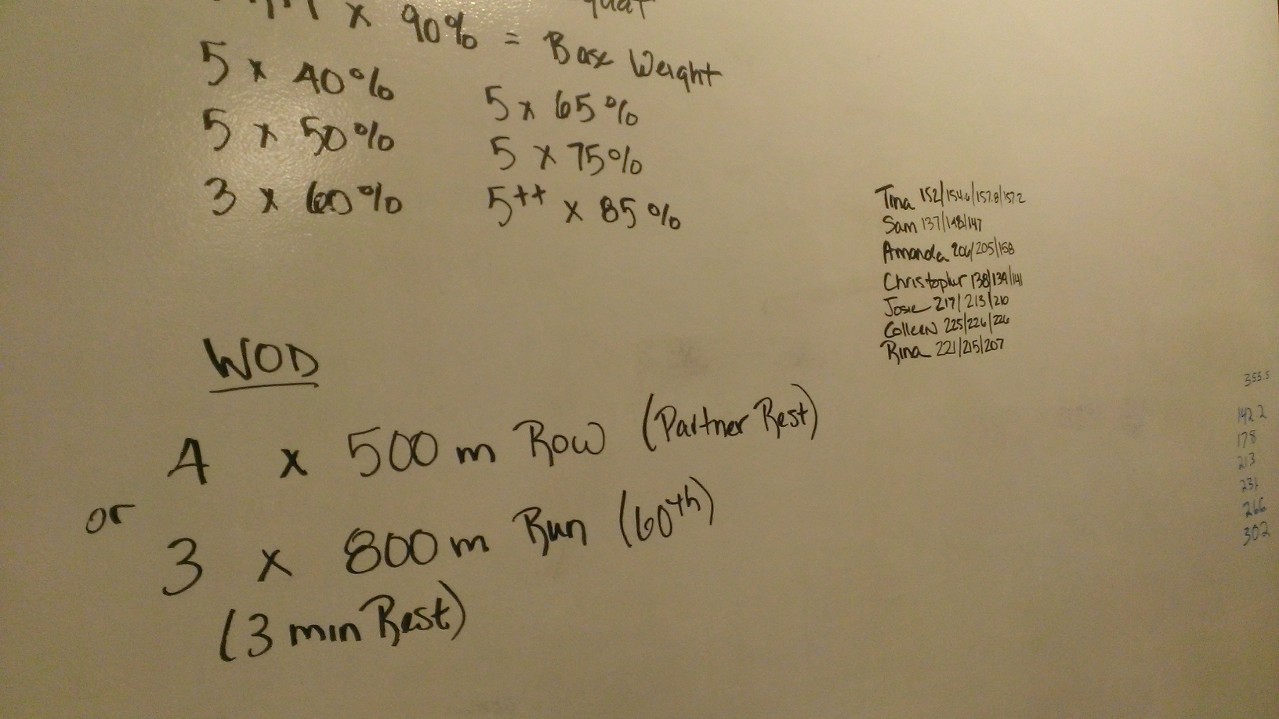 x 90% = Base Weight
5 x 40%
5 x 50%
3 x 60%
5 x 65%
5 x 75%
5++ x 85%
Tina 152/154.6/157.8/157.2
Sam 137/148/147
Amanda 206/205/158
Christopher 138/139/141
Josie 217/213/210
Colleen 225/226/226
Rina 221/215/207
WOD
4 x 500 m Row (Partner Rest)
or
3 x 800 m Run (60th)
(3 min Rest)
353.5
142.2
178
213
231
266
302